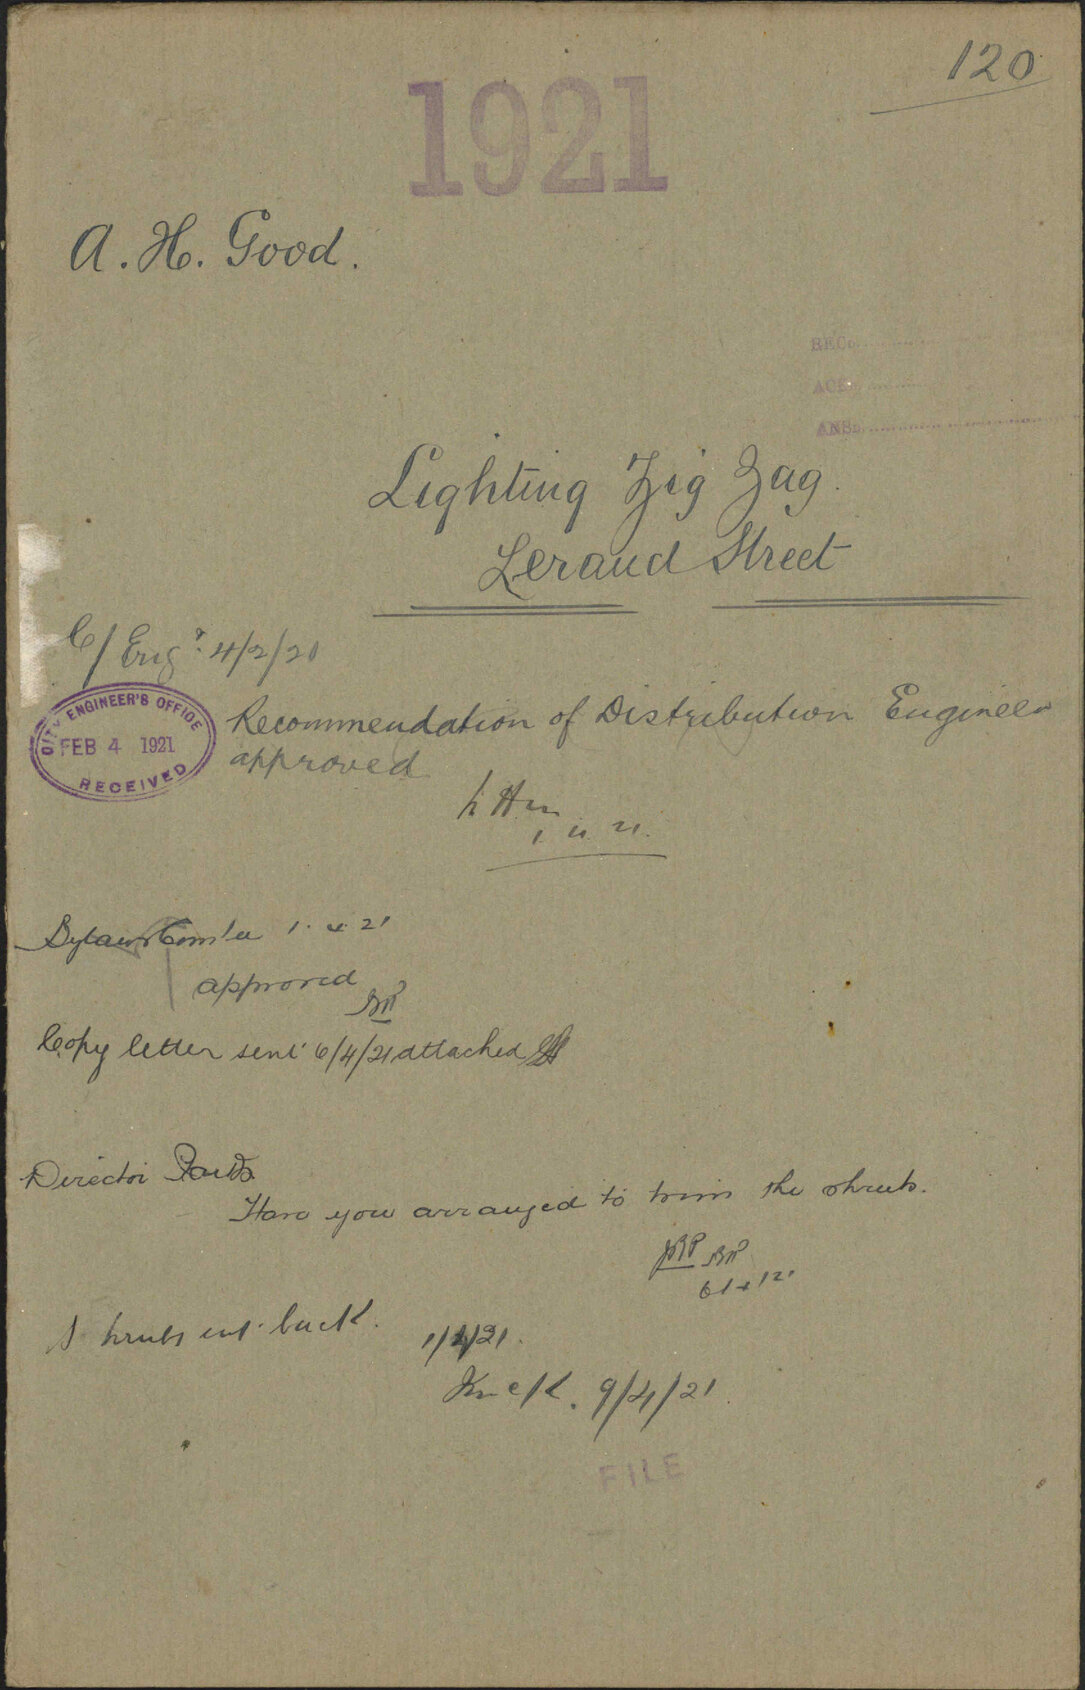 120
1921
A. H. Good.
REC
ACK
ANS
Lighting Zig Zag.
Leraud Street
C/Engr. 4/2/21
CITY ENGINEER'S OFFICE
FEB 4 1921
RECEIVED
Recommendation of Distribution Engineer
approved
Bylaws Com'ee 1. 4. 21
approved
Copy letter sent 6/4/21 attached
Director Parks
Have you arranged to trim the shrubs.
Shrubs cut back.
9/4/21
FILE